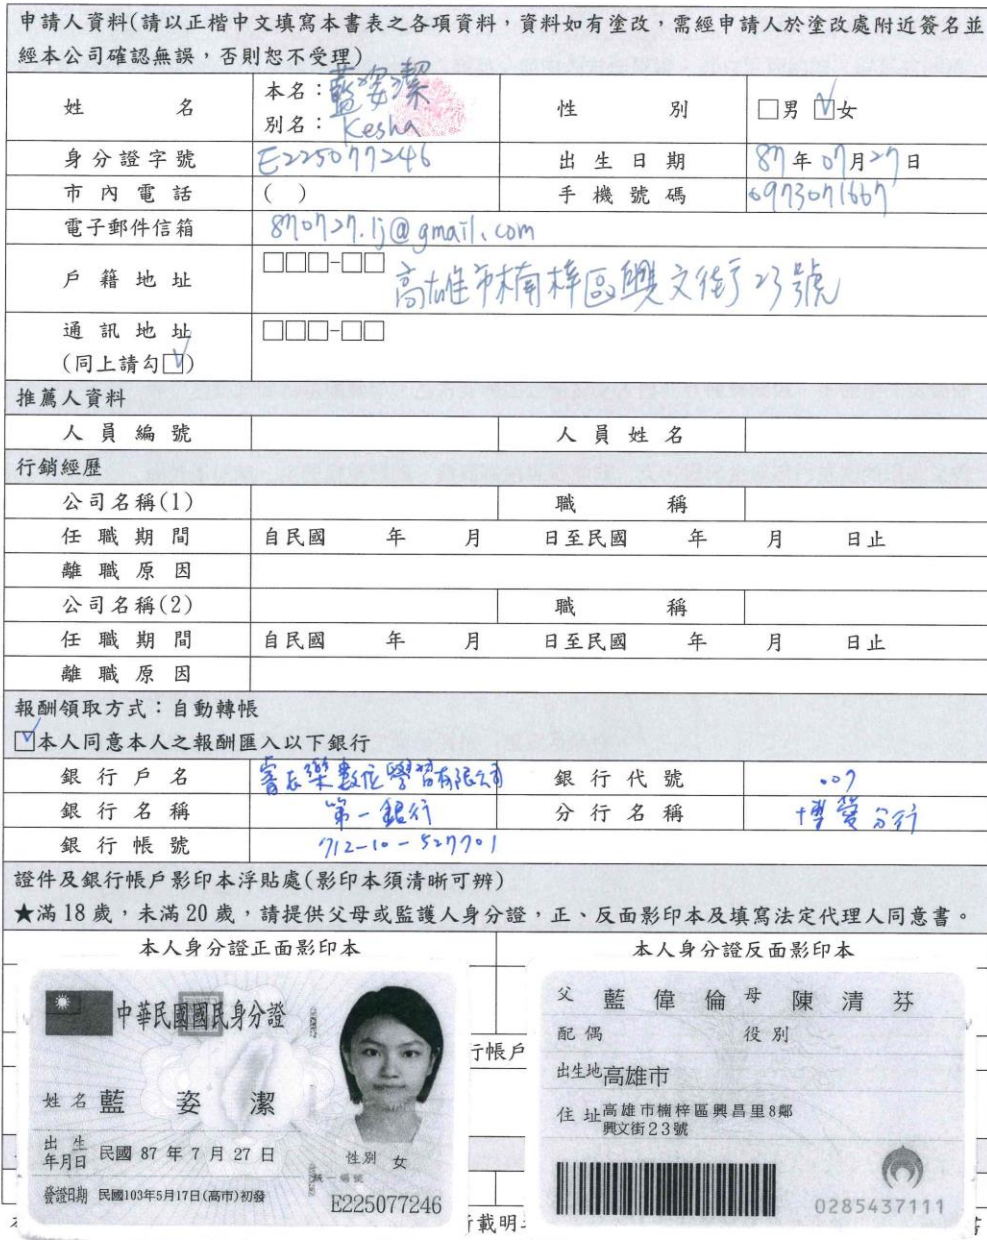 申請人資料(請以正楷中文填寫本書表之各項資料，資料如有塗改，需經申請人於塗改處附近簽名並
經本公司確認無誤，否則恕不受理)
姓名 本名：藍姿潔 性別 □男 ☑女
別名：Kesha
身分證字號 E225077246 出生日期 87年07月27日
市內電話 ( ) 手機號碼 0973071667
電子郵件信箱 870727.lj@gmail.com
戶籍地址 □□□-□□ 高雄市楠梓區興文街23號
通訊地址 □□□-□□
(同上請勾☑)
推薦人資料
人員編號 人員姓名
行銷經歷
公司名稱(1) 職稱
任職期間 自民國 年 月 日至民國 年 月 日止
離職原因
公司名稱(2) 職稱
任職期間 自民國 年 月 日至民國 年 月 日止
離職原因
報酬領取方式：自動轉帳
☑本人同意本人之報酬匯入以下銀行
銀行戶名 數位學習有限公司 銀行代號 007
銀行名稱 第一銀行 分行名稱 博愛分行
銀行帳號 712-10-527701
證件及銀行帳戶影印本浮貼處(影印本須清晰可辨)
★滿18歲，未滿20歲，請提供父母或監護人身分證，正、反面影印本及填寫法定代理人同意書。
本人身分證正面影印本 本人身分證反面影印本
中華民國國民身分證
姓名 藍姿潔
出生年月日 民國 87 年 7 月 27 日 性別 女
發證日期 民國103年5月17日(高市)初發
統一編號 E225077246
行帳戶
父 藍偉倫 母 陳清芬
配偶 役別
出生地 高雄市
住址 高雄市楠梓區興昌里8鄰
興文街23號
0285437111
載明